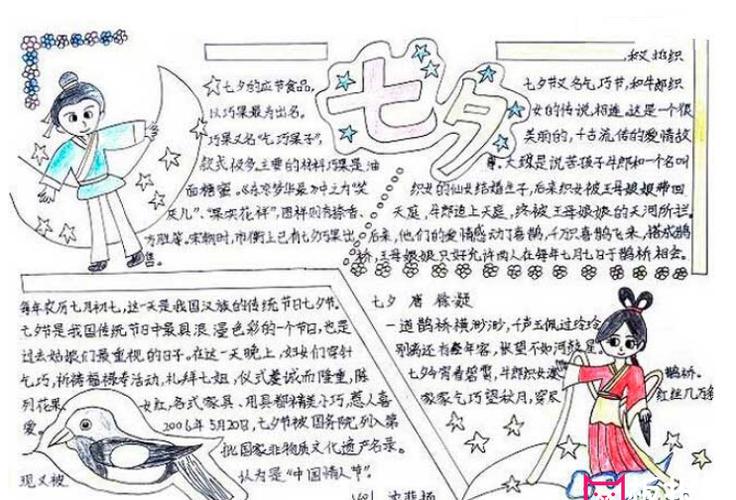 七夕
七夕的应节食品,
以巧果最为出名。
巧果又名"乞巧果子",
款式极多,主要的材料巧果是油
面糖蜜。《东京梦华录》中之为"笑
厌儿"、"果实花样",图样则有捺香、
方胜等。宋朝时,市街上已有七夕巧果出
售。
七夕节又名乞巧节,和牛郎织
女的传说相连。这是一个很
美丽的,千古流传的爱情故
事。大致是说苦孩子牛郎和一个名叫
织女的仙女结婚生子,后来织女被王母娘娘带回
天庭,牛郎追上天庭,终被王母娘娘的天河所拦。
后来,他们的爱情感动了喜鹊,千万只喜鹊飞来,搭成鹊
桥,王母娘娘只好允许两人在每年七月七日于鹊桥相会。
每年农历七月初七,这一天是我国汉族的传统节日七夕节。
七夕节是我国传统节日中最具浪漫色彩的一个节日,也是
过去姑娘们最重视的日子。在这一天晚上,妇女们穿针
乞巧,祈祷福禄寿活动,礼拜七姐,仪式虔诚而隆重,陈
列花果、女红,各式家具、用具都精美小巧,惹人喜
爱。2006年5月20日,七夕节被国务院列入第
一批国家非物质文化遗产名录。
现又被认为是"中国情人节"。
七夕 唐 徐凝
一道鹊桥横渺渺,千声玉佩过玲玲
别离还有经年客,怅望不如河鼓星
七夕今宵看碧霄,牛郎织女渡鹊桥。
家家乞巧望秋月,穿尽红丝几万条